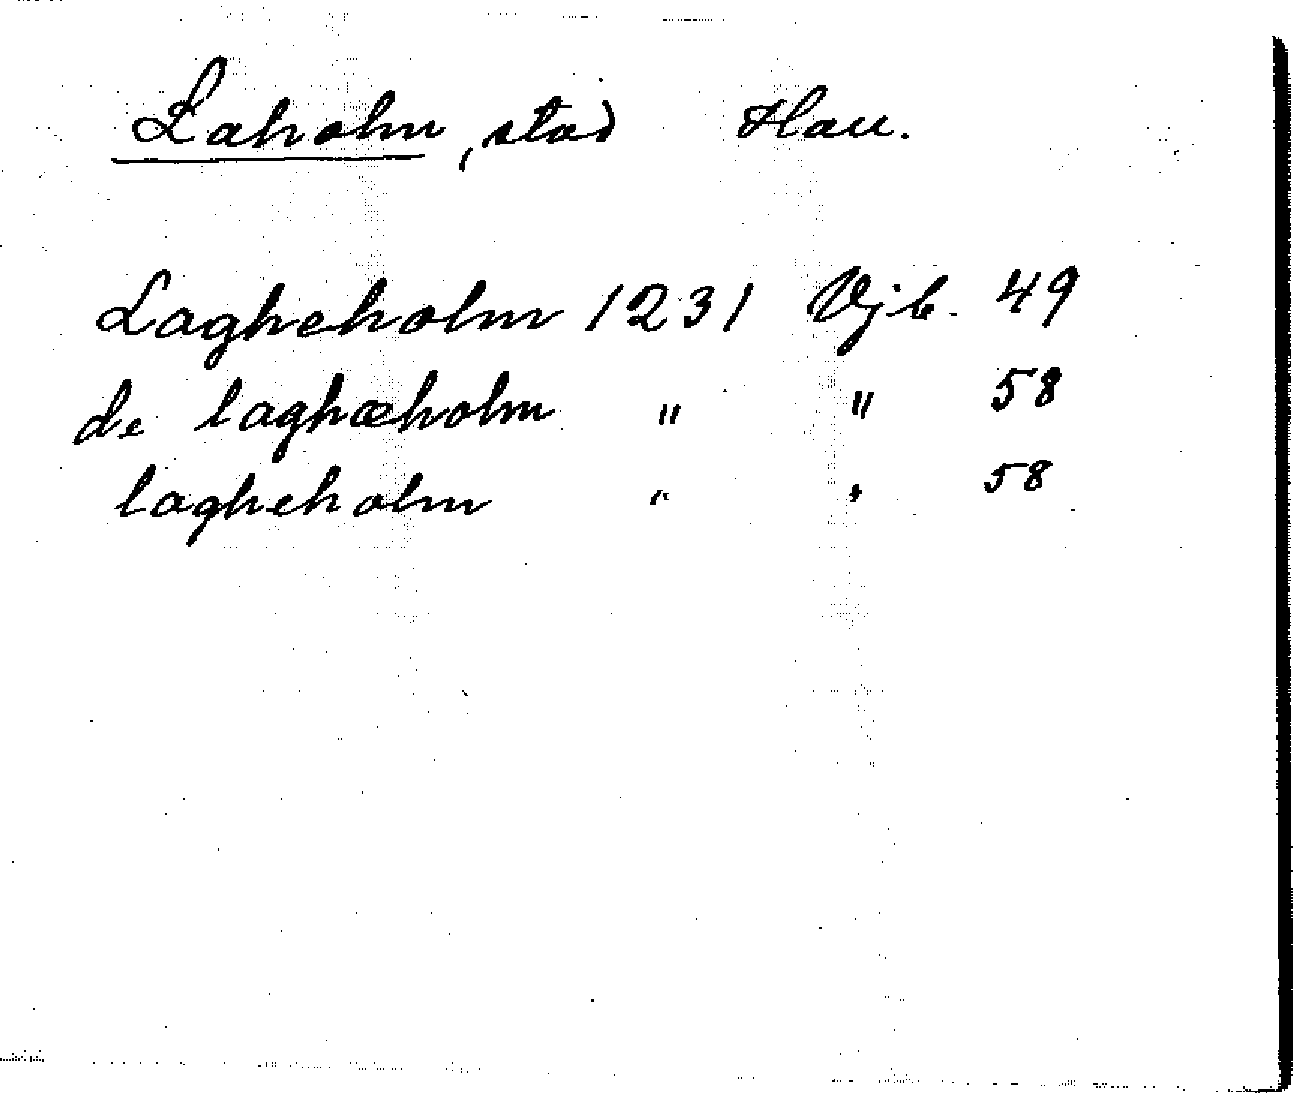 Laholm, stad Hall.
Lagheholm 1231 Vjb. 49
de laghæholm " " 58
lagheholm " " 58